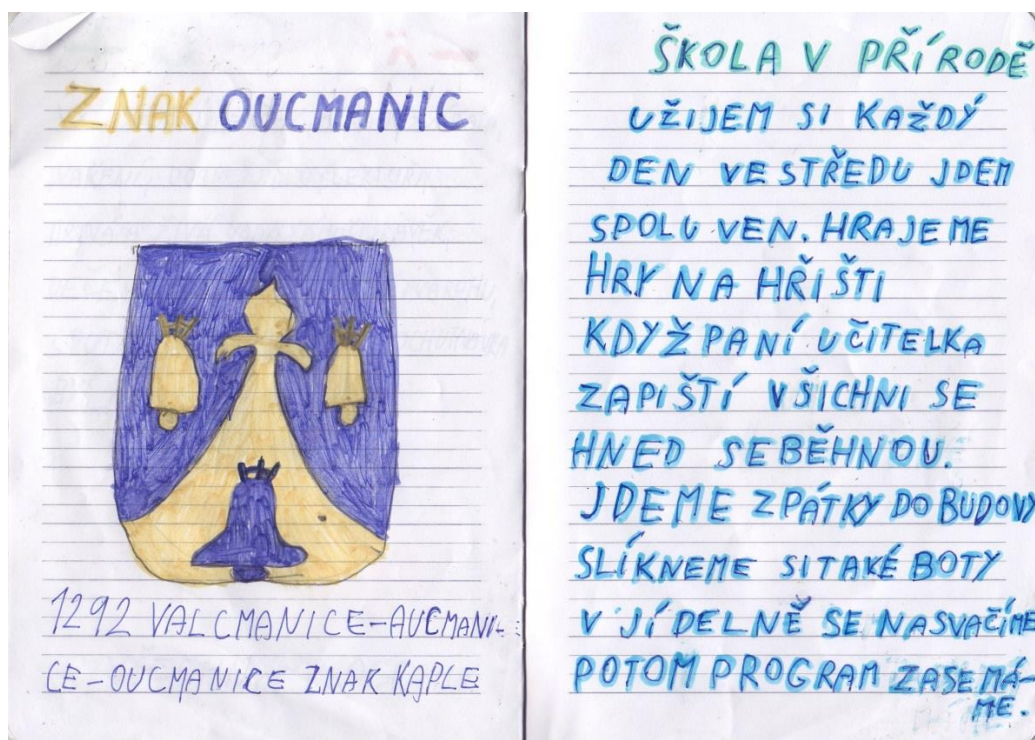 ZNAK OUCMANIC
1292 VALCMANICE-AUCMANI-
CE-OUCMANICE ZNAK KAPLE
ŠKOLA V PŘÍRODĚ
UŽIJEM SI KAŽDÝ
DEN VE STŘEDU JDEM
SPOLU VEN. HRAJEME
HRY NA HŘIŠTI
KDYŽ PANÍ UČITELKA
ZAPIŠTÍ VŠICHNI SE
HNED SEBĚHNOU.
JDEME ZPÁTKY DO BUDOVY
SLÍKNEME SI TAKÉ BOTY
V JÍDELNĚ SE NASVAČÍME
POTOM PROGRAM ZASE MÁ-
ME.